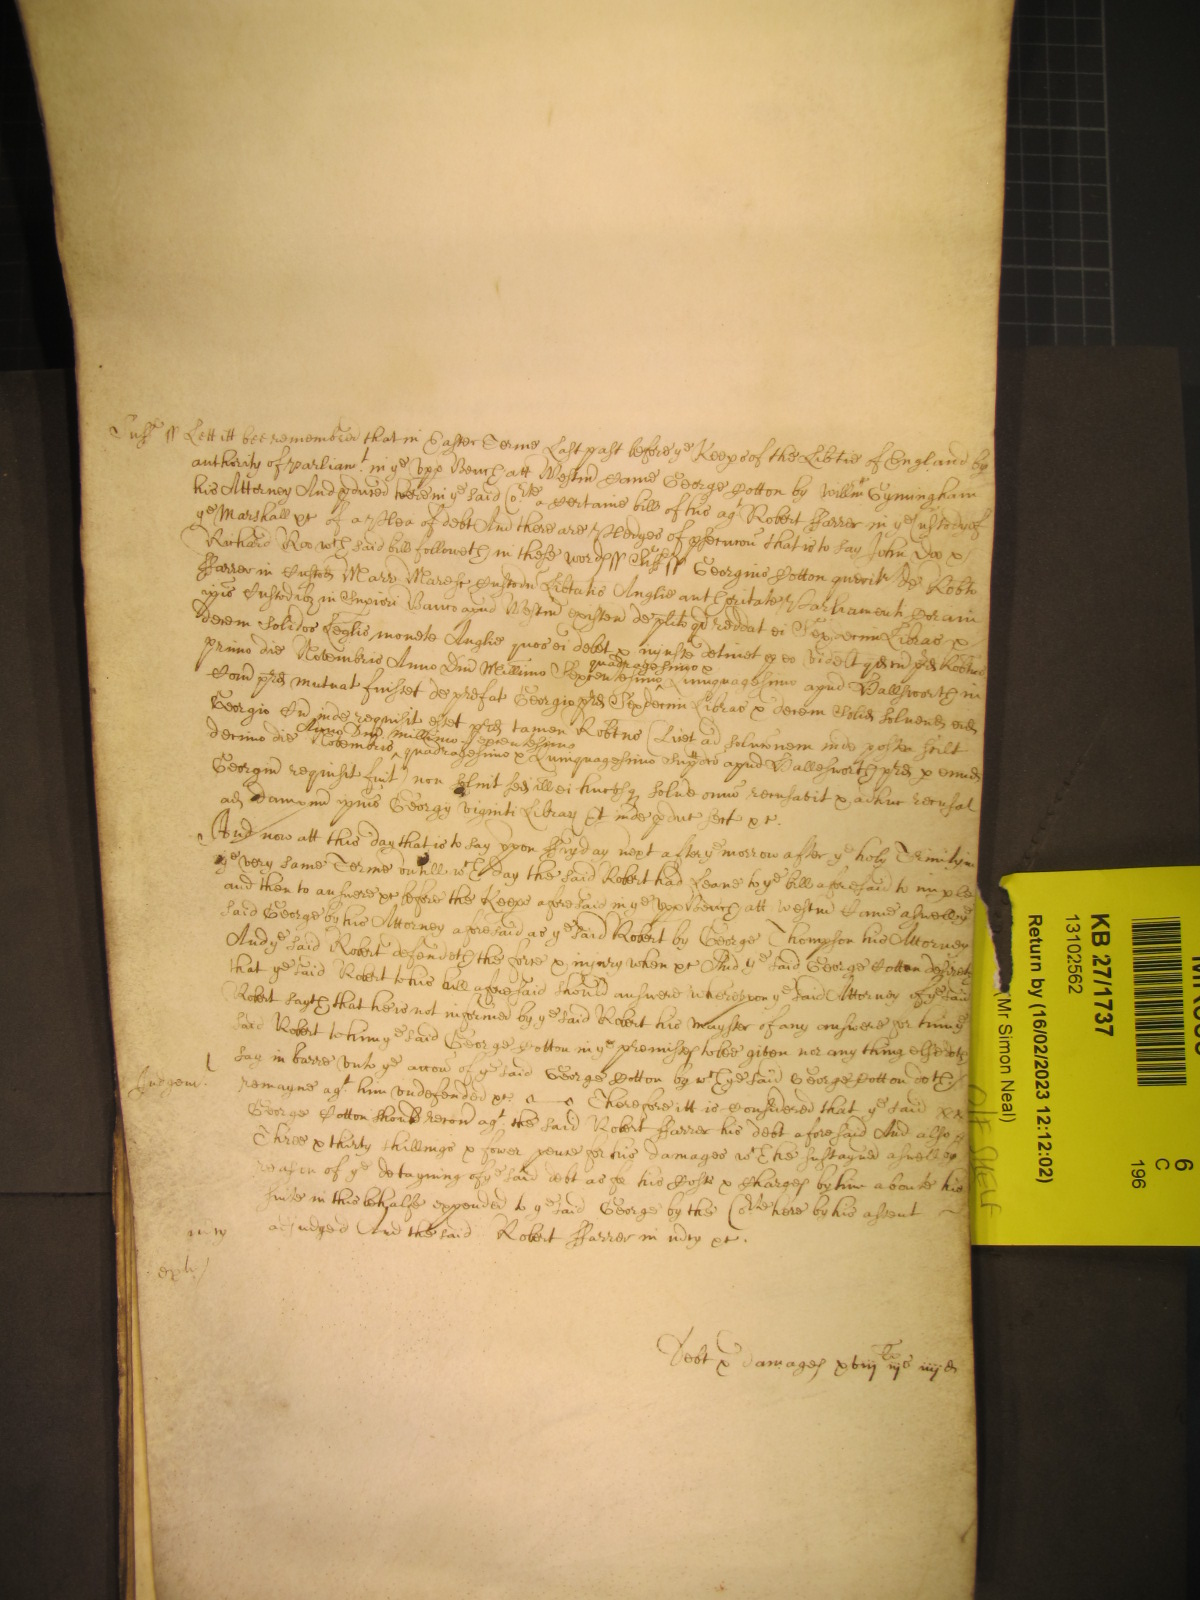 Suff ss Lett itt bee remembred that in Easter Terme Last past before ye Keeps of the Libtie of England by
authority of parliamt in ye vpp Bench att Westm Came George Cotton by Willm Gynningham
his Attorney And pduced here in ye said Corte a certaine bill of his agt Robert ffarrer in ye custody of
ye Marshall &c of a Plea of debt And there are Pledges of psecucon that is to say John Doo &
Richard Roo wch said bill followeth in these words ss Suff ss Georgius Cotton querit de Robto
ffarrer in Custod Marr Maresc Custodu Libtatis Anglie authoritate Parliamenti coram
ipis Custodibz in Supiori Banco apud Westm existen de plito qd reddat ei Sexdecim Libras &
decem Solidos Leglis monete Anglie quos ei debet & injuste detinet p eo videlt qd cu pd Robtus
primo die Novembris Anno Dni Millimo Sexcentesimo quadragesimo & Quinquagesimo apud Wallsworth in
Com pd mutuat fuisset de prefat Georgio pd Sexdecim Libras & decem Solid solvend eid
Georgio Cu inde requisit esset pd tamen Robtus Licet ad solucionem inde postea scilt
decimo die Novembris Anno Dni millimo sexcentesimo quadragesimo & Quinquagesimo supdco apud Wallesworth pd p eund
Georgiu requisit fuit non solvit sed ill ei hucusq solve omio recusavit & adhuc recusat
ad dampnu ipius Georgij viginti Librar Et inde pduc sect &c.
And now att this day that is to say vpon ffryday next after ye morrow after ye holy Trinity in
ye very same Terme vntill wch day the said Robert had Leave to ye bill aforesaid to imple
and then to answere &c before the Keeps aforesaid in ye vpp Bench att Westm Came aswell ye
said George by his Attorney aforesaid as ye said Robert by George Thompson his Attorney
And ye said Robert defendeth the force & injury when &c And ye said George Cotton desireth
that ye said Robert to his bill aforesaid should answere wherevpon ye said Attorney of ye said
Robert sayth that he is not informed by ye said Robert his Mayster of any answere for him ye
said Robert to him ye said George Cotton in ye premisses to bee given nor any thing else doth
say in barre vnto ye accon of ye said George Cotton by wch ye said George Cotton doth
Judgemt. remayne agt him vndefended &c Therefore itt is Considered that ye said
George Cotton should recou agt the said Robert ffarrer his debt aforesaid And also
Three & thirty shillings & fower pence for his damages wch he sustayned aswell by
reason of ye detayning of ye said debt as for his Costs & Charges by him aboute his
suite in this behalfe expended to ye said George by the Corte here by his assent
mcy adjudged And the said Robert ffarrer in mcy &c.
Debt & damages xviij li iij s iiij d
KB 27/1737
13102562
Return by (16/02/2023 12:12:02)
(Mr Simon Neal)
6
C
196